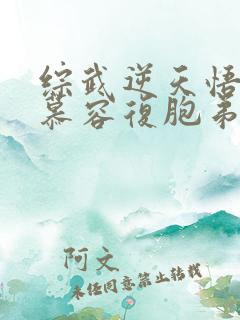 综武逆天悟
慕容復胞弟
阿文
未经同意禁止转载